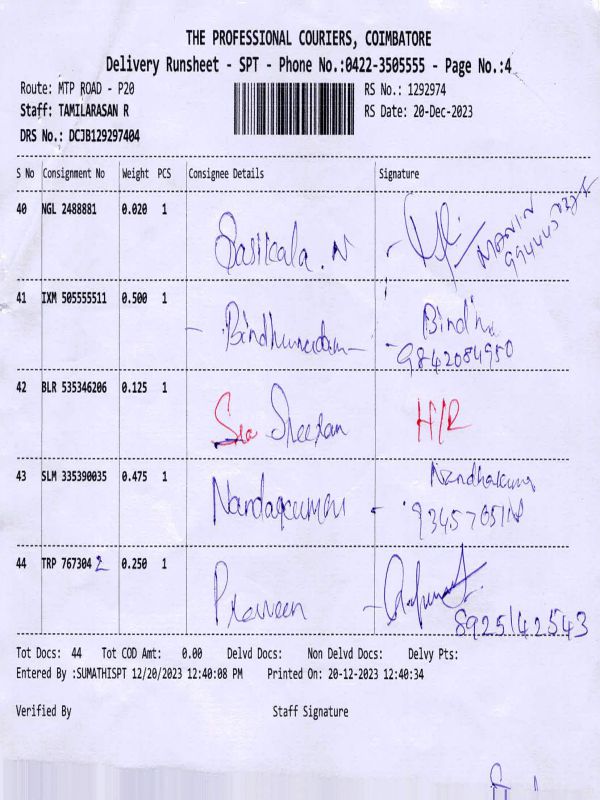 THE PROFESSIONAL COURIERS, COIMBATORE
Delivery Runsheet - SPT - Phone No.:0422-3505555 - Page No.:4
Route: MTP ROAD - P20 RS No.: 1292974
Staff: TAMILARASAN R RS Date: 20-Dec-2023
DRS No.: DCJB129297404
S No Consignment No Weight PCS Consignee Details Signature
40 NGL 2488881 0.020 1 Sasikala. N
41 IXM 505555511 0.500 1 Bindhu
9842084950
42 BLR 535346206 0.125 1 H/R
43 SLM 335390035 0.475 1 Nandakumar
44 TRP 767304 2 0.250 1 Praveen
8925142543
Tot Docs: 44 Tot COD Amt: 0.00 Delvd Docs: Non Delvd Docs: Delvy Pts:
Entered By :SUMATHISPT 12/20/2023 12:40:08 PM Printed On: 20-12-2023 12:40:34
Verified By Staff Signature